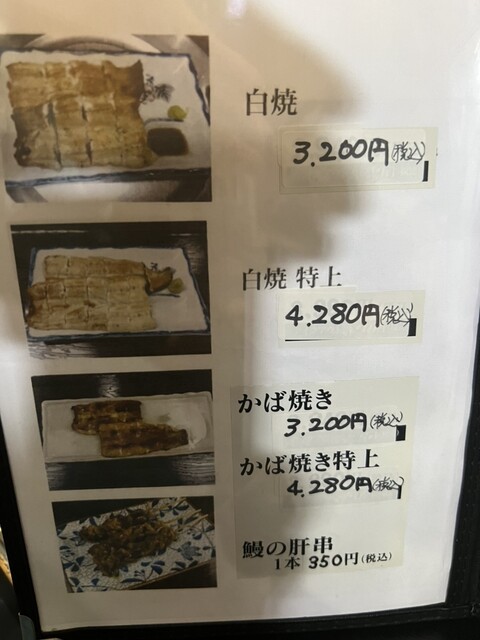 白焼
3,200円(税込)
白焼 特上
4,280円(税込)
かば焼き
3,200円(税込)
かば焼き特上
4,280円(税込)
鰻の肝串
1本 350円(税込)